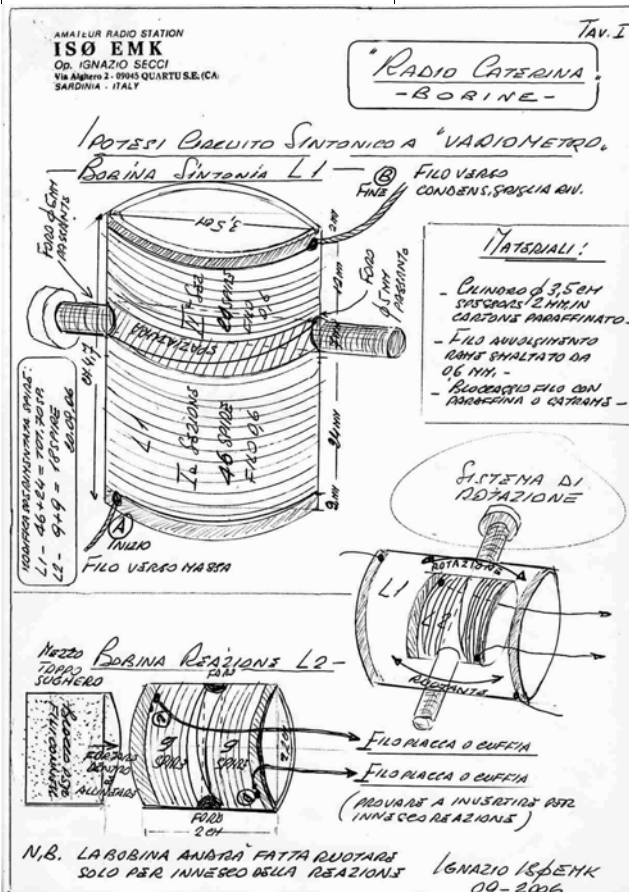 TAV. I
AMATEUR RADIO STATION
ISØ EMK
Op. IGNAZIO SECCI
Via Alghero 2 - 09045 QUARTU S.E. (CA)
SARDINIA - ITALY
"RADIO CATERINA"
- BOBINE -
IPOTESI CIRCUITO SINTONICO A "VARIOMETRO"
BOBINA SINTONIA L1
B
FINE
FILO VERSO
CONDENS. GRIGLIA RIV.
FORO Ø 5MM
PASSANTE
3,5CM
2MM
12MM
FORO
Ø 5MM
PASSANTE
20 SPIRE
FILO
0,6
SPAZIATURA
CM 4,7
L1
Ia SEZIONE
46 SPIRE
FILO 0,6
2MM
A
INIZIO
FILO VERSO MASSA
MODIFICA
L1 - 46+24 = TOT. 70 SP.
L2 - 9+9 = 18 SPIRE
20.09.06
MATERIALI:
- CILINDRO Ø 3,5CM
SPESSORE 2MM, IN
CARTONE PARAFFINATO.
- FILO AVVOLGIMENTO
RAME SMALTATO DA
06 MM. -
- BLOCCAGGIO FILO CON
PARAFFINA O CATRAME -
SISTEMA DI
ROTAZIONE
ROTAZIONE
L1
L2
ROTANTE
MEZZO
TAPPO
SUGHERO
BOBINA REAZIONE L2 -
FORO
FORZARE
DENTRO
ALLINEARE
9
SPIRE
9
SPIRE
FORO
2CM
FILO PLACCA O CUFFIA
FILO PLACCA O CUFFIA
(PROVARE A INVERTIRE PER
INNESCO REAZIONE)
N.B. LA BOBINA ANDRA' FATTA RUOTARE
SOLO PER INNESCO DELLA REAZIONE
IGNAZIO ISØEMK
09-2006